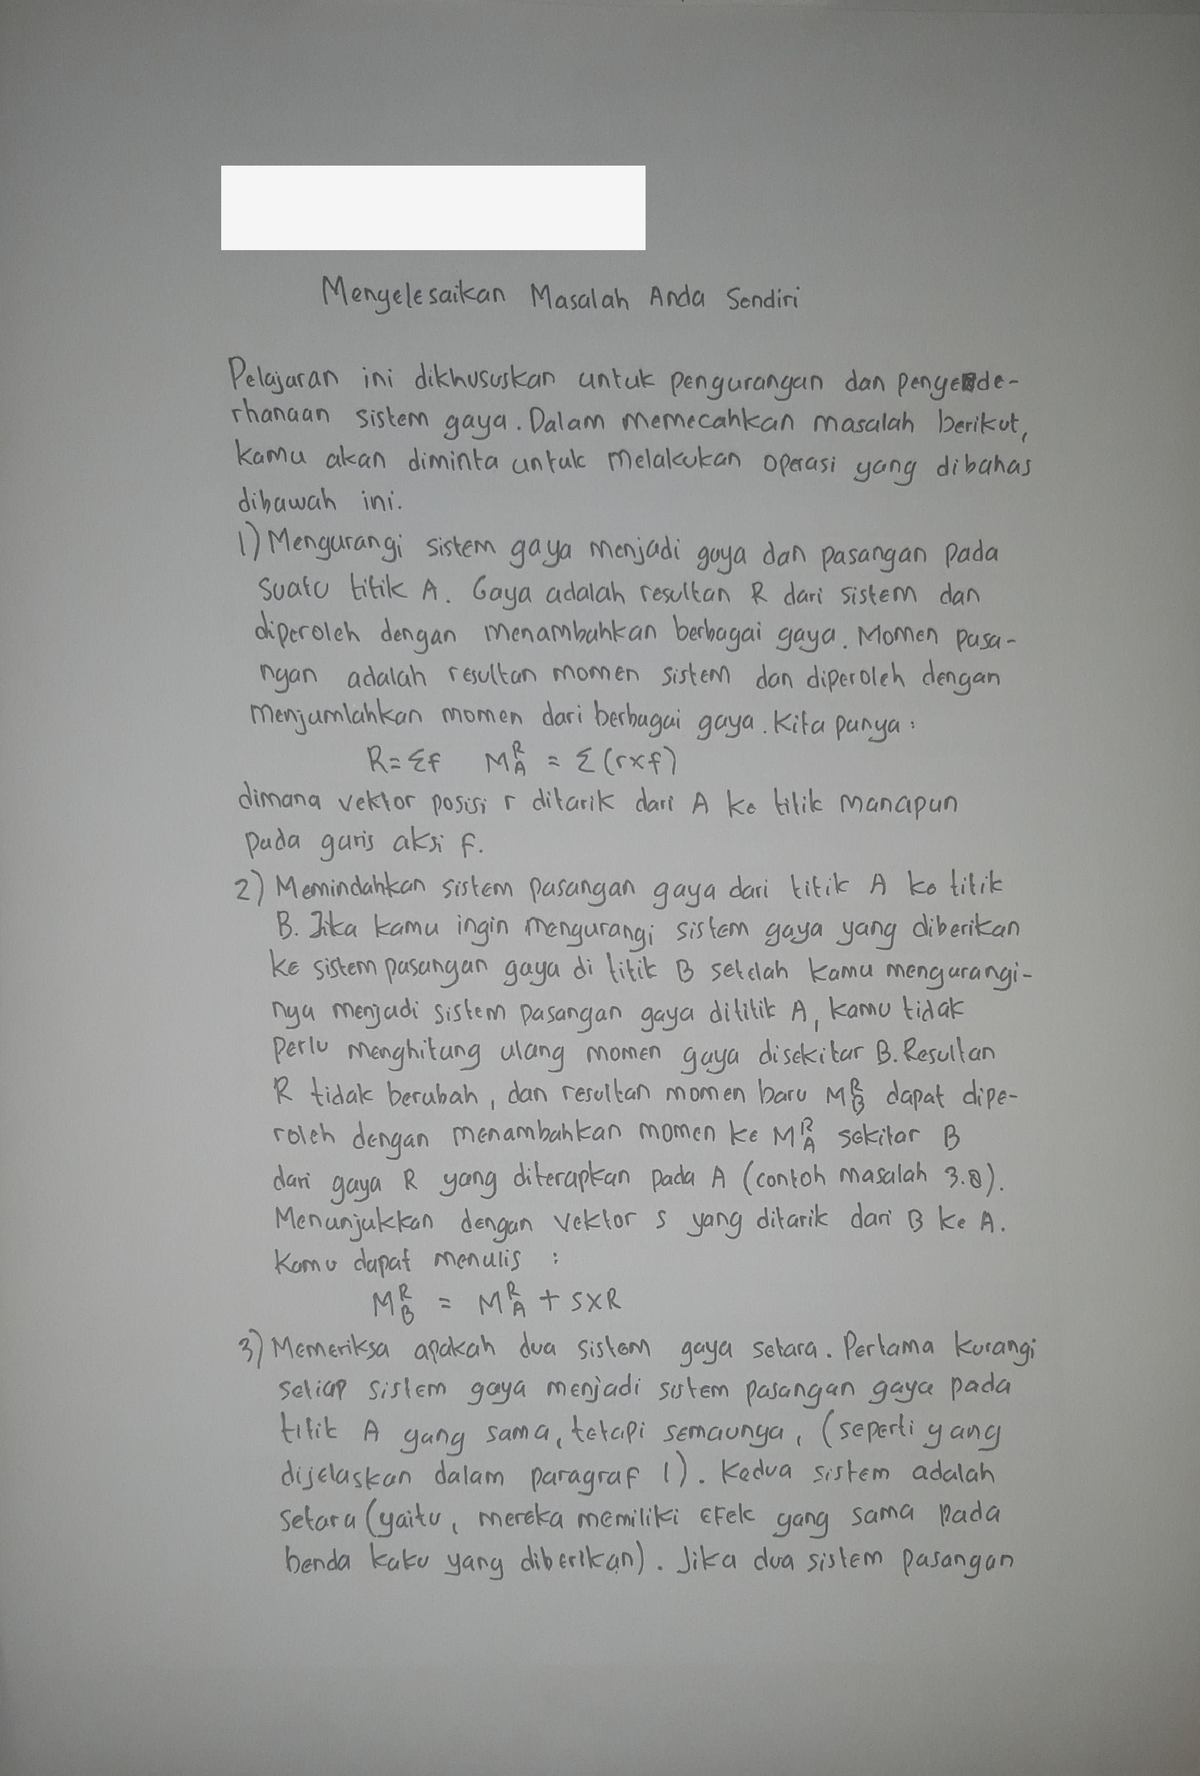 Menyelesaikan Masalah Anda Sendiri
Pelajaran ini dikhususkan untuk pengurangan dan penyede-
rhanaan sistem gaya. Dalam memecahkan masalah berikut,
kamu akan diminta untuk melakukan operasi yang dibahas
dibawah ini.
1) Mengurangi sistem gaya menjadi gaya dan pasangan pada
suatu titik A. Gaya adalah resultan R dari sistem dan
diperoleh dengan menambahkan berbagai gaya. Momen pasa-
ngan adalah resultan momen sistem dan diperoleh dengan
menjumlahkan momen dari berbagai gaya. Kita punya :
R = Σf   M^R_A = Σ (r×f)
dimana vektor posisi r ditarik dari A ke titik manapun
pada garis aksi f.
2) Memindahkan sistem pasangan gaya dari titik A ke titik
B. Jika kamu ingin mengurangi sistem gaya yang diberikan
ke sistem pasangan gaya di titik B setelah kamu mengurangi-
nya menjadi sistem pasangan gaya dititik A, kamu tidak
perlu menghitung ulang momen gaya disekitar B. Resultan
R tidak berubah, dan resultan momen baru M^R_B dapat dipe-
roleh dengan menambahkan momen ke M^R_A sekitar B
dari gaya R yang diterapkan pada A (contoh masalah 3.8).
Menunjukkan dengan vektor s yang ditarik dari B ke A.
Kamu dapat menulis :
M^R_B = M^R_A + s×R
3) Memeriksa apakah dua sistem gaya setara. Pertama kurangi
setiap sistem gaya menjadi sistem pasangan gaya pada
titik A yang sama, tetapi semaunya, (seperti yang
dijelaskan dalam paragraf 1). Kedua sistem adalah
setara (yaitu, mereka memiliki efek yang sama pada
benda kaku yang diberikan). Jika dua sistem pasangan